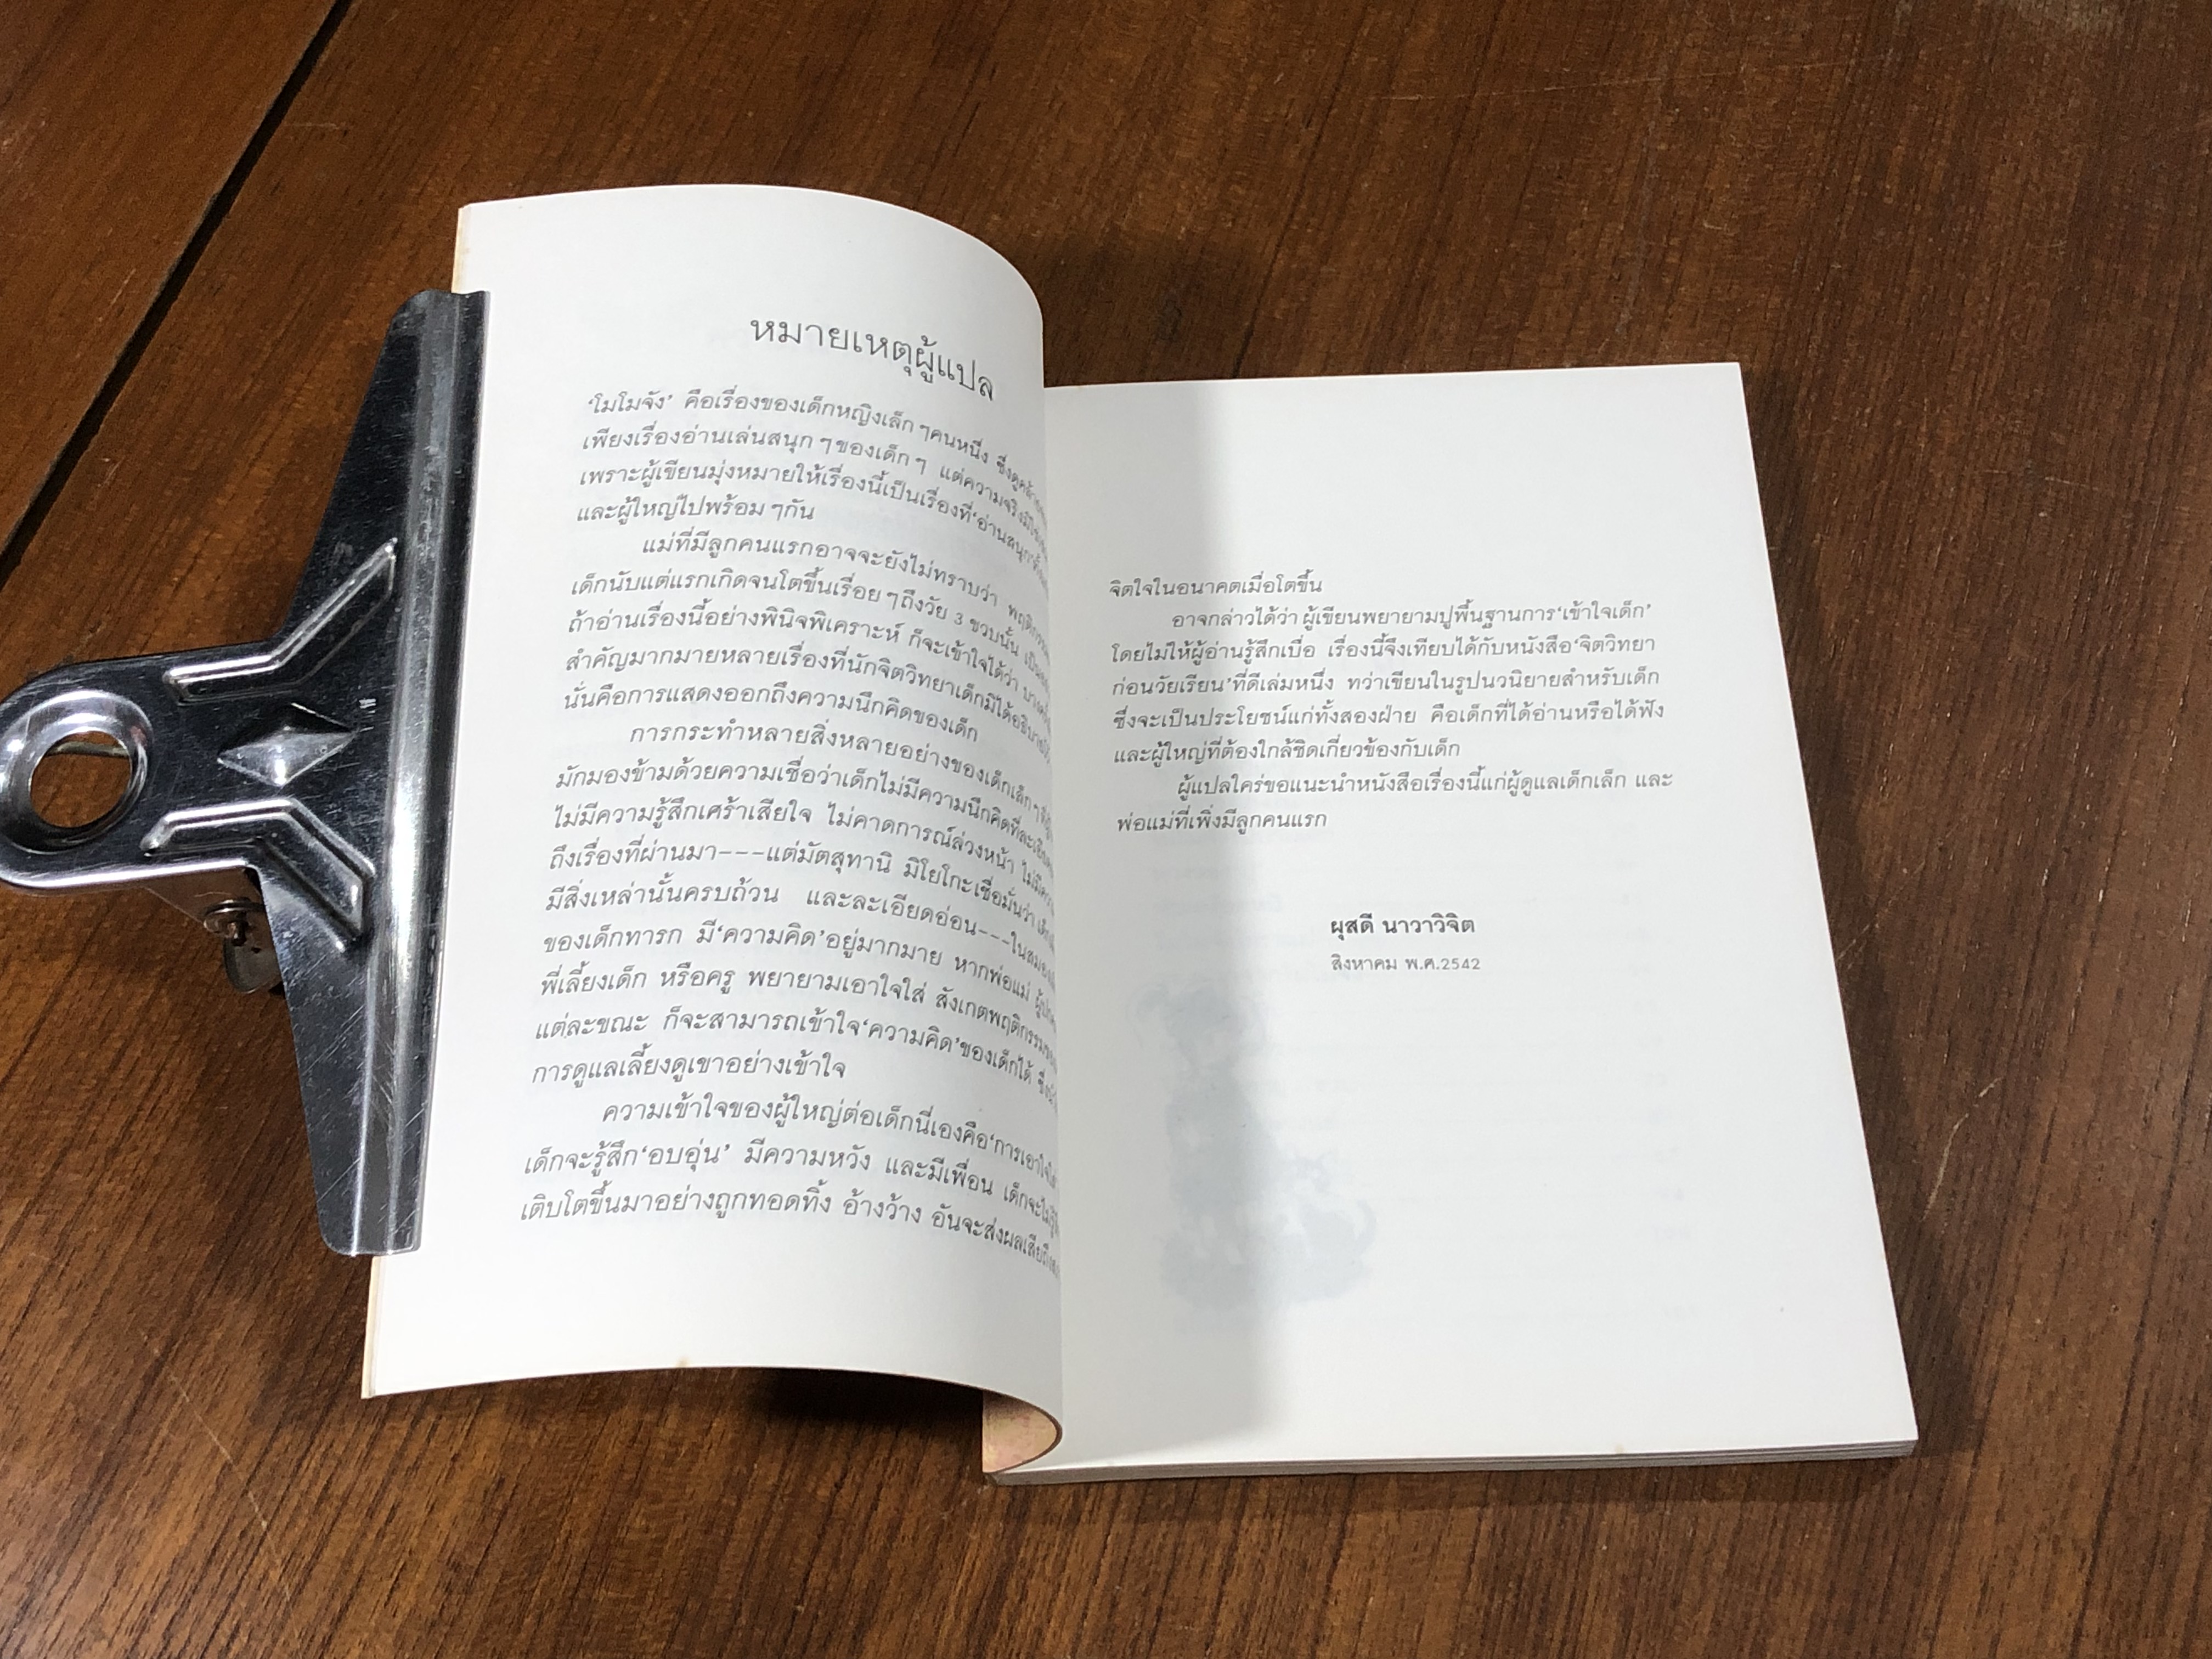 หมายเหตุผู้แปล
‘โมโมจัง’ คือเรื่องของเด็กหญิงเล็ก ๆ คนหนึ่ง ซึ่งดูคล้าย
เพียงเรื่องอ่านเล่นสนุก ๆ ของเด็ก ๆ แต่ความจริงมิใช่
เพราะผู้เขียนมุ่งหมายให้เรื่องนี้เป็นเรื่องที่‘อ่านสนุก’
และผู้ใหญ่ไปพร้อม ๆ กัน
แม่ที่มีลูกคนแรกอาจจะยังไม่ทราบว่า
เด็กนับแต่แรกเกิดจนโตขึ้นเรื่อย ๆ ถึงวัย 3 ขวบนั้น
ถ้าอ่านเรื่องนี้อย่างพินิจพิเคราะห์ ก็จะเข้าใจได้ว่า
สำคัญมากมายหลายเรื่องที่นักจิตวิทยาเด็กมิได้อธิบาย
นั่นคือการแสดงออกถึงความนึกคิดของเด็ก
การกระทำหลายสิ่งหลายอย่างของเด็กเล็ก ๆ
มักมองข้ามด้วยความเชื่อว่าเด็กไม่มีความนึกคิดที่
ไม่มีความรู้สึกเศร้าเสียใจ ไม่คาดการณ์ล่วงหน้า
ถึงเรื่องที่ผ่านมา---แต่มัตสุทานิ มิโยโกะเชื่อมั่นว่า
มีสิ่งเหล่านั้นครบถ้วน และละเอียดอ่อน---ในสมอง
ของเด็กทารก มี‘ความคิด’อยู่มากมาย หากพ่อแม่
พี่เลี้ยงเด็ก หรือครู พยายามเอาใจใส่ สังเกตพฤติกรรม
แต่ละขณะ ก็จะสามารถเข้าใจ‘ความคิด’ของเด็กได้
การดูแลเลี้ยงดูเขาอย่างเข้าใจ
ความเข้าใจของผู้ใหญ่ต่อเด็กนี่เองคือ‘การเอาใจใส่
เด็กจะรู้สึก‘อบอุ่น’ มีความหวัง และมีเพื่อน เด็กจะไม่รู้
เติบโตขึ้นมาอย่างถูกทอดทิ้ง อ้างว้าง อันจะส่งผลเสีย
จิตใจในอนาคตเมื่อโตขึ้น
อาจกล่าวได้ว่า ผู้เขียนพยายามปูพื้นฐานการ‘เข้าใจเด็ก’
โดยไม่ให้ผู้อ่านรู้สึกเบื่อ เรื่องนี้จึงเทียบได้กับหนังสือ‘จิตวิทยา
ก่อนวัยเรียน’ที่ดีเล่มหนึ่ง ทว่าเขียนในรูปนวนิยายสำหรับเด็ก
ซึ่งจะเป็นประโยชน์แก่ทั้งสองฝ่าย คือเด็กที่ได้อ่านหรือได้ฟัง
และผู้ใหญ่ที่ต้องใกล้ชิดเกี่ยวข้องกับเด็ก
ผู้แปลใคร่ขอแนะนำหนังสือเรื่องนี้แก่ผู้ดูแลเด็กเล็ก และ
พ่อแม่ที่เพิ่งมีลูกคนแรก
ผุสดี นาวาวิจิต
สิงหาคม พ.ศ.2542